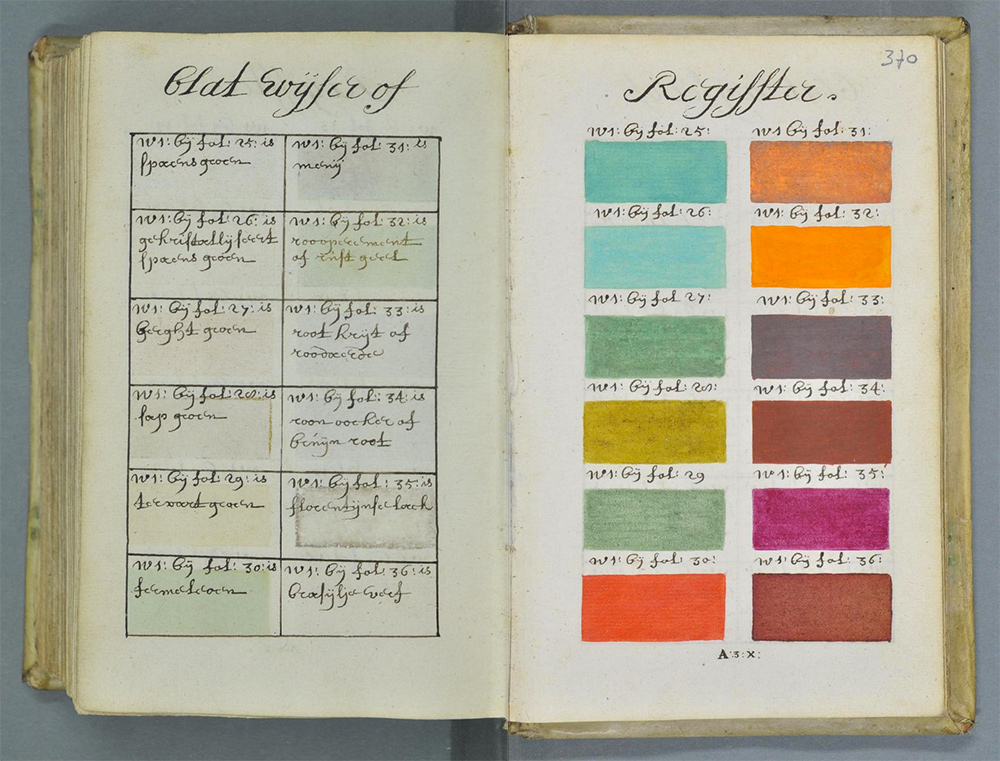 blat wijser of
w1: bij fol: 25: is
spaens groen
w1: bij fol: 31: is
menij
w1: bij fol: 26: is
gekristallijseert
spaens groen
w1: bij fol: 32: is
roooperement
of rust geel
w1: bij fol: 27: is
berght groen
w1: bij fol: 33: is
root krijt of
roodaerde
w1: bij fol: 28: is
sap groen
w1: bij fol: 34: is
roon oocker of
bruijn root
w1: bij fol: 29: is
terwart groen
w1: bij fol: 35: is
florentijnse lack
w1: bij fol: 30: is
fermeleoen
w1: bij fol: 36: is
brasijlje verf
Regisster.
370
w1: bij fol: 25:
w1 bij fol: 31:
w1: bij fol: 26:
w1: bij fol: 32:
w1: bij fol 27:
w1: bij fol: 33:
w1: bij fol: 28:
w1: bij fol: 34:
w1: bij fol: 29
w1: bij fol: 35:
w1: bij fol: 30:
w1: bij fol: 36:
A:3:X: